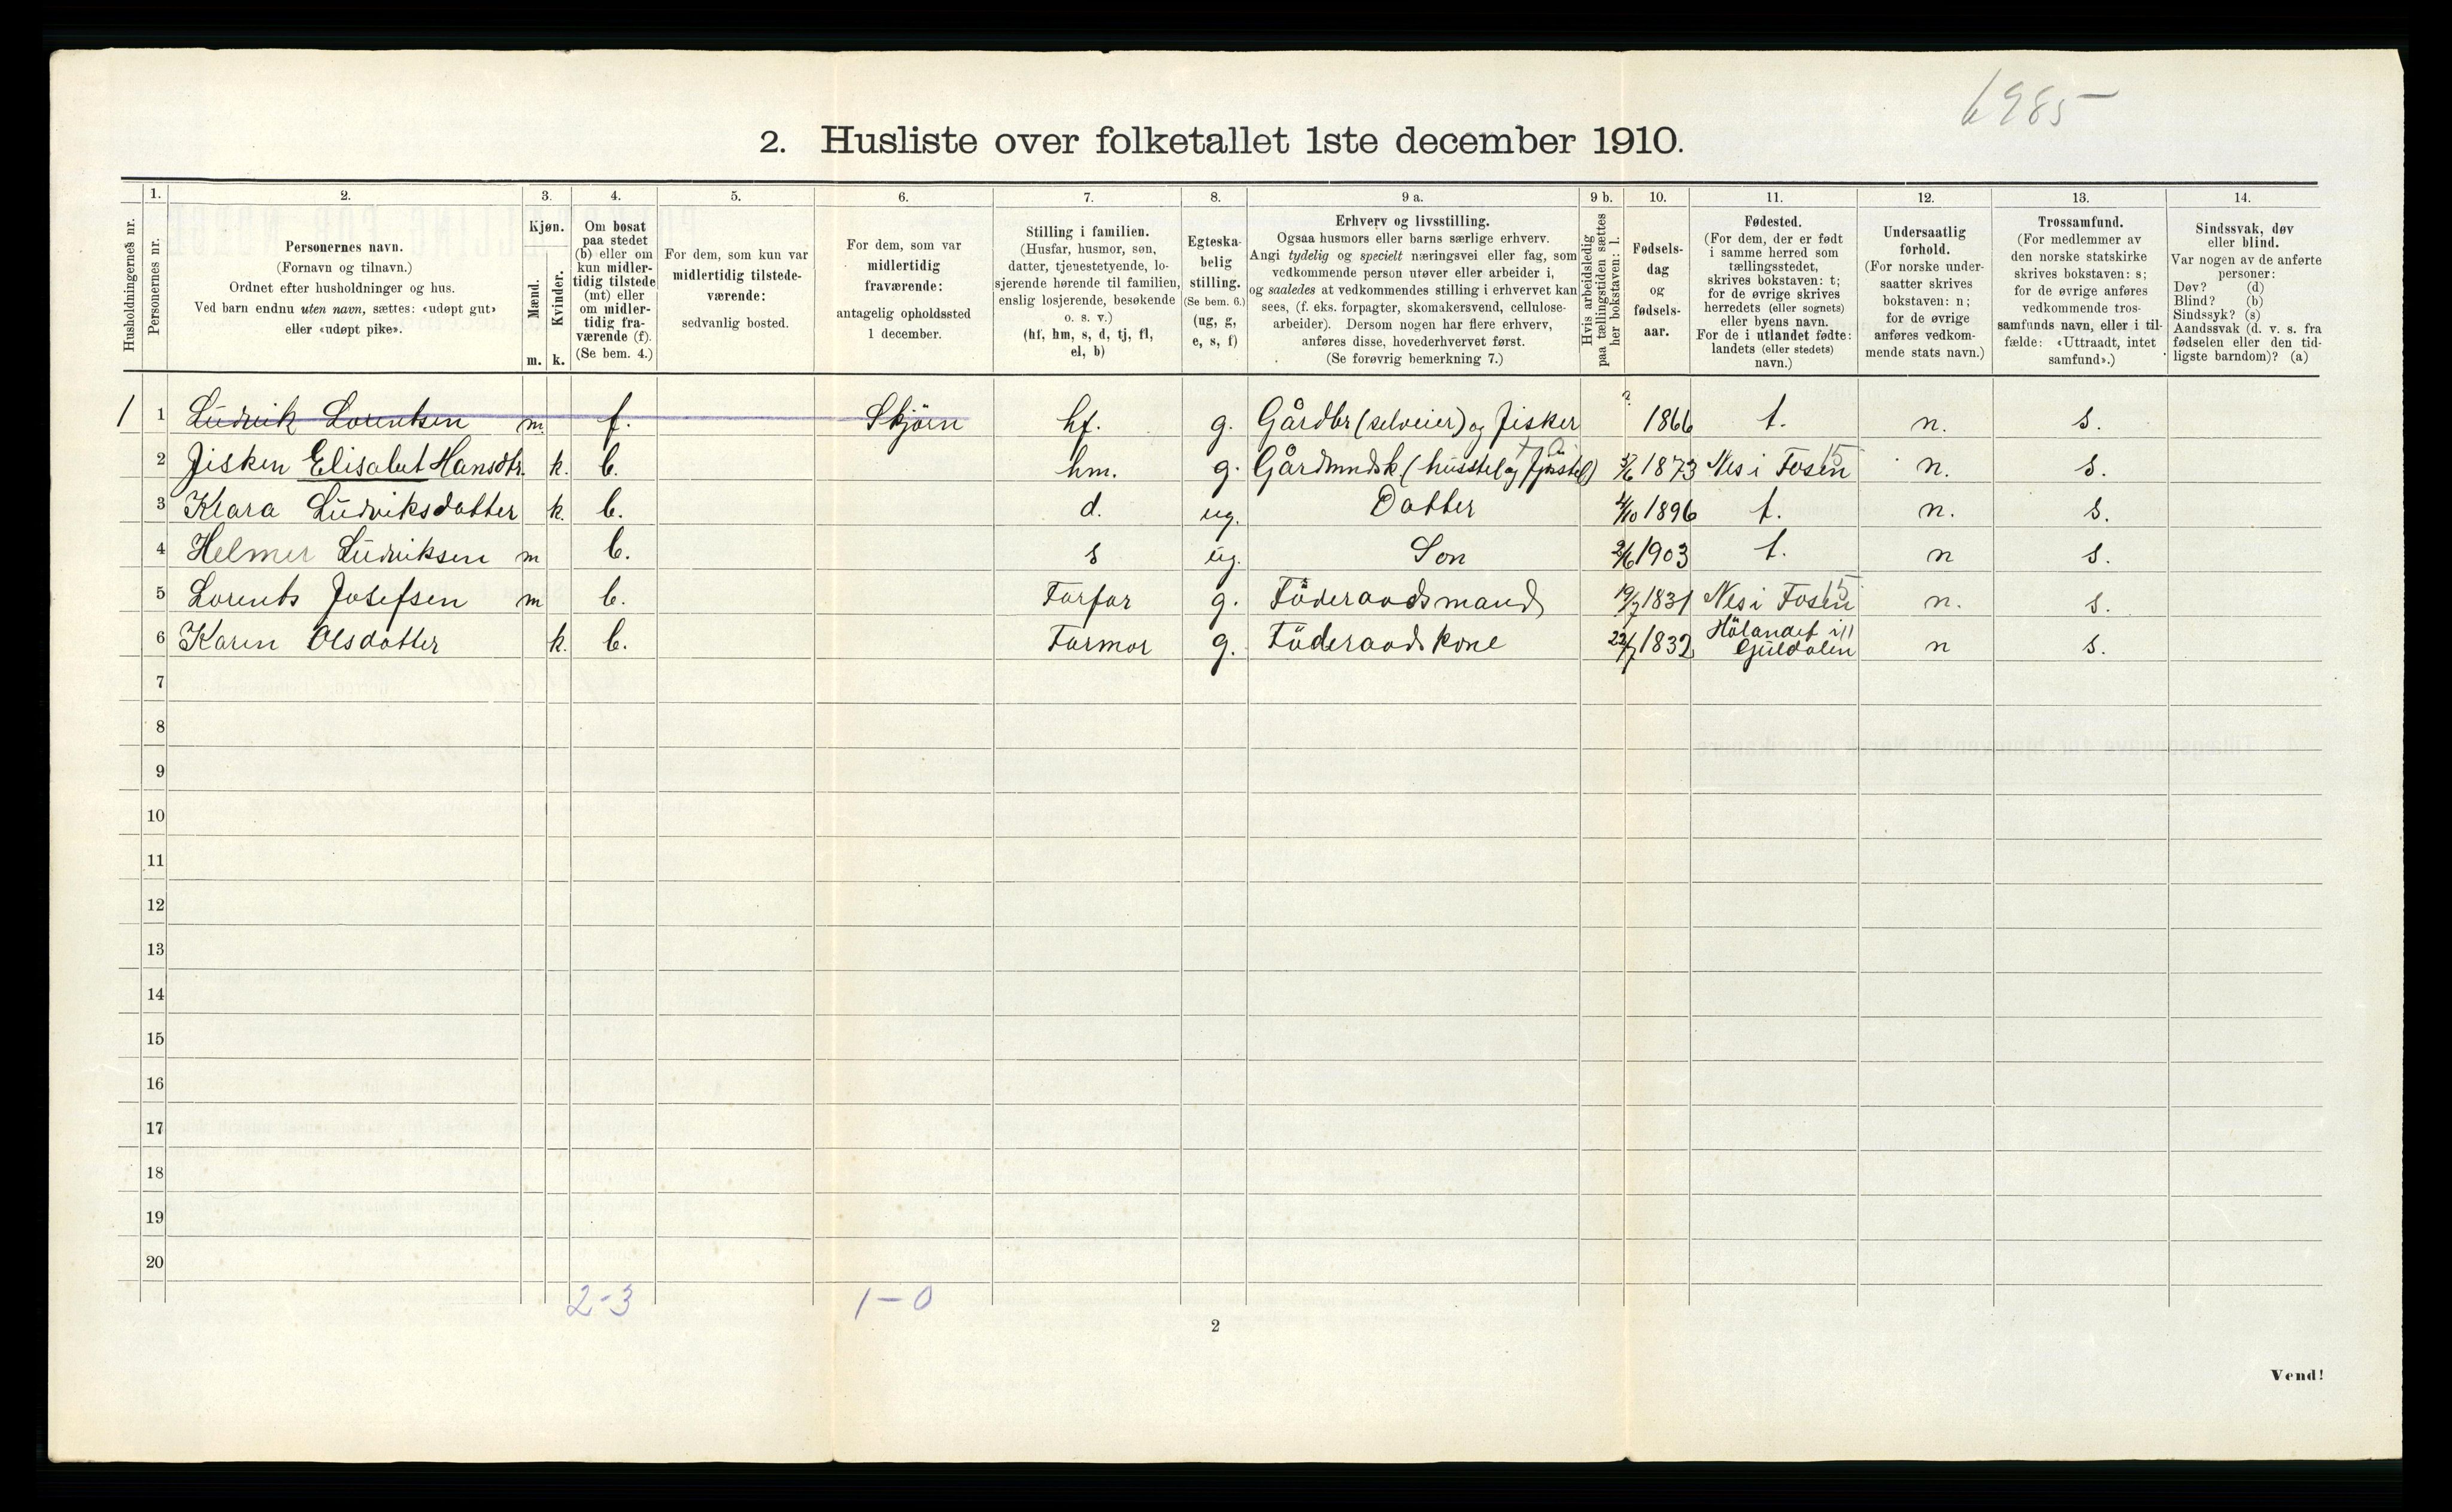 6985
2. Husliste over folketallet 1ste december 1910.
Husholdningernes nr.
1.
Personernes nr.
2.
Personernes navn.
(Fornavn og tilnavn.)
Ordnet efter husholdninger og hus.
Ved barn endnu uten navn, sættes: «udøpt gut»
eller «udøpt pike».
3.
Kjøn.
Mænd.
Kvinder.
m. k.
4.
Om bosat
paa stedet
(b) eller om
kun midler-
tidig tilstede
(mt) eller
om midler-
tidig fra-
værende (f).
(Se bem. 4.)
5.
For dem, som kun var
midlertidig tilstede-
værende:
sedvanlig bosted.
6.
For dem, som var
midlertidig
fraværende:
antagelig opholdssted
1 december.
7.
Stilling i familien.
(Husfar, husmor, søn,
datter, tjenestetyende, lo-
sjerende hørende til familien,
enslig losjerende, besøkende
o. s. v.)
(hf, hm, s, d, tj, fl,
el, b)
8.
Egteska-
belig
stilling.
(Se bem. 6.)
(ug, g,
e, s, f)
9 a.
Erhverv og livsstilling.
Ogsaa husmors eller barns særlige erhverv.
Angi tydelig og specielt næringsvei eller fag, som
vedkommende person utøver eller arbeider i,
og saaledes at vedkommendes stilling i erhvervet kan
sees, (f. eks. forpagter, skomakersvend, cellulose-
arbeider). Dersom nogen har flere erhverv,
anføres disse, hovederhvervet først.
(Se forøvrig bemerkning 7.)
9 b.
Hvis arbeidsledig
paa tællingstiden sættes
her bokstaven: l.
10.
Fødsels-
dag
og
fødsels-
aar.
11.
Fødested.
(For dem, der er født
i samme herred som
tællingsstedet,
skrives bokstaven: t;
for de øvrige skrives
herredets (eller sognets)
eller byens navn.
For de i utlandet fødte:
landets (eller stedets)
navn.)
12.
Undersaatlig
forhold.
(For norske under-
saatter skrives
bokstaven: n;
for de øvrige
anføres vedkom-
mende stats navn.)
13.
Trossamfund.
(For medlemmer av
den norske statskirke
skrives bokstaven: s;
for de øvrige anføres
vedkommende tros-
samfunds navn, eller i til-
fælde: «Uttraadt, intet
samfund».)
14.
Sindssvak, døv
eller blind.
Var nogen av de anførte
personer:
Døv? (d)
Blind? (b)
Sindssyk? (s)
Aandssvak (d. v. s. fra
fødselen eller den tid-
ligste barndom)? (a)
1 1 Ludvik Lorentsen m. f. Skjörn hf. g. Gårdbr (selveier) og Fisker ? 1866 t. n. s.
2 Fisken Elisabet Hansdtr. k. b. hm. g. Gårdmndsk (husstel og fjösstel) 5/6 1873 Nes i Fosen 15 n. s.
3 Klara Ludviksdatter k. b. d. ug. Datter 4/10 1896 t. n. s.
4 Helmer Ludviksen m b. s ug. Son 2/6 1903 t. n s.
5 Lorents Josefsen m b. Farfar g. Föderaadsmand 19/7 1831 Nes i Fosen 15 n. s.
6 Karen Olsdatter k. b. Farmor g. Föderaadskone 22/7 1832 Hölandet i Guldalen n s.
7
8
9
10
11
12
13
14
15
16
17
18
19
20
2-3 1-0
2
Vend!